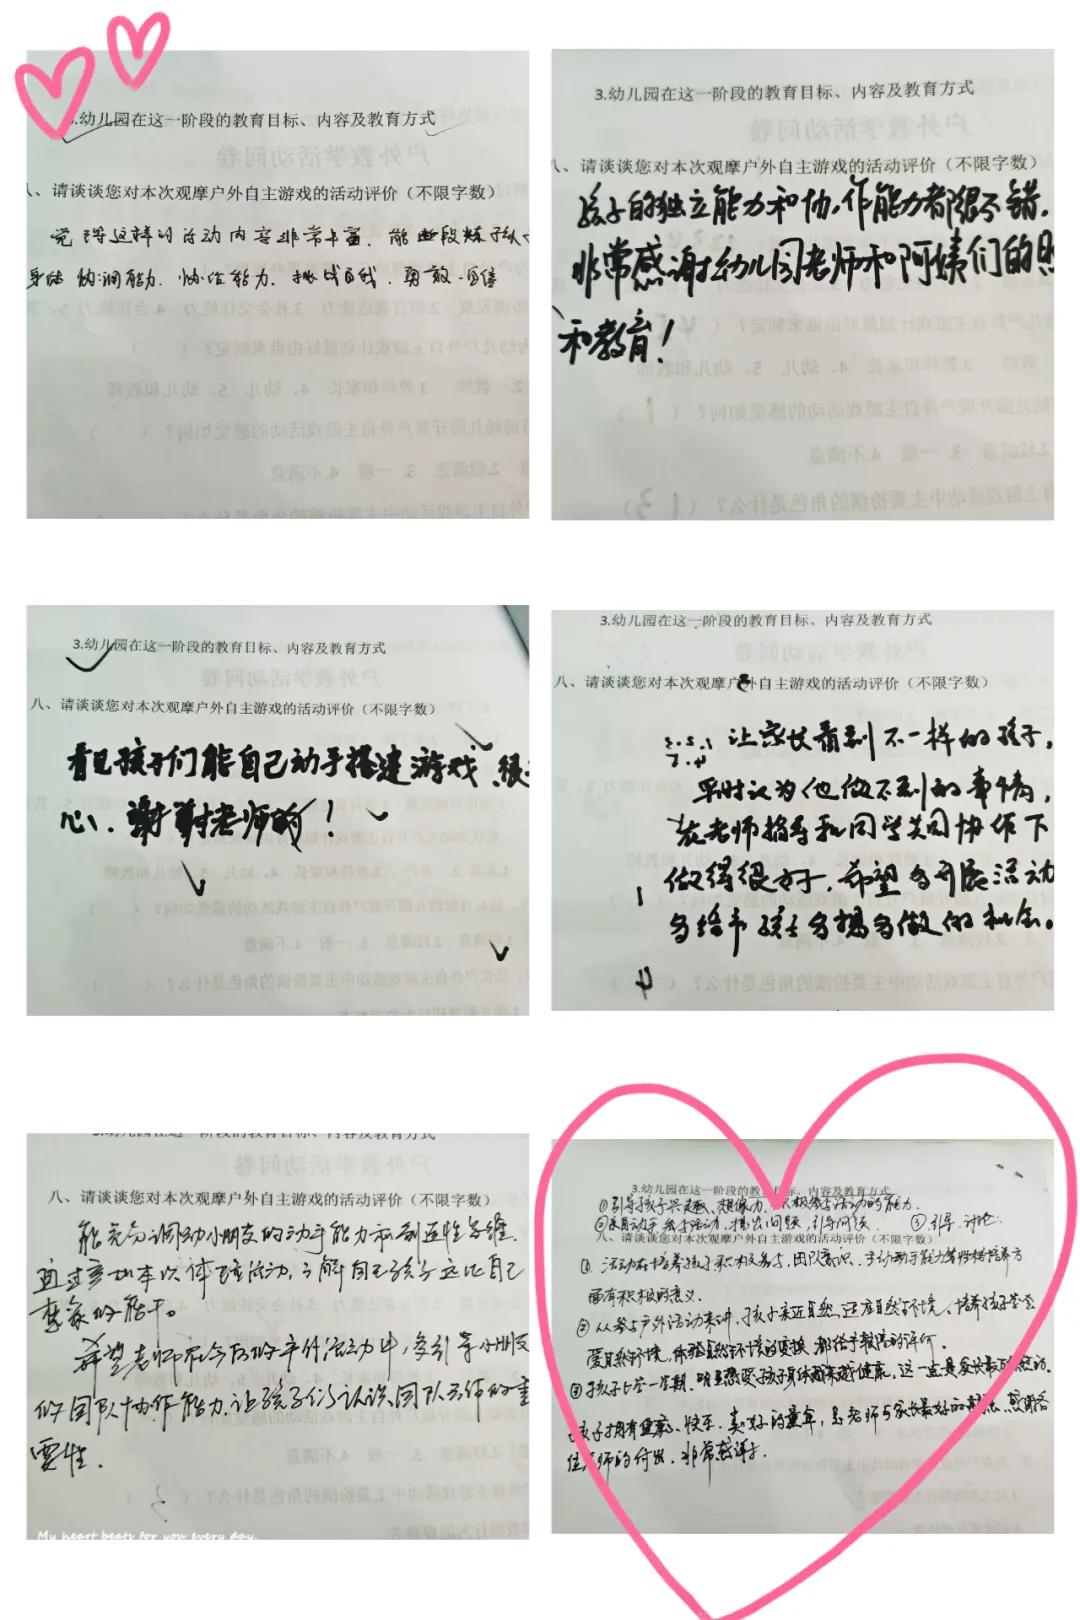 3.幼儿园在这一阶段的教育目标、内容及教育方式
八、请谈谈您对本次观摩户外自主游戏的活动评价（不限字数）
觉得这样的活动内容非常丰富、能够锻炼孩子
身体协调能力、协作能力、挑战自我、勇敢、自信
3.幼儿园在这一阶段的教育目标、内容及教育方式
八、请谈谈您对本次观摩户外自主游戏的活动评价（不限字数）
孩子的独立能力和协作能力都很不错，
非常感谢幼儿园老师和阿姨们的
和教育！
3.幼儿园在这一阶段的教育目标、内容及教育方式
八、请谈谈您对本次观摩户外自主游戏的活动评价（不限字数）
看见孩子们能自己动手搭建游戏 很
心、谢谢老师的！
3.幼儿园在这一阶段的教育目标、内容及教育方式
八、请谈谈您对本次观摩户外自主游戏的活动评价（不限字数）
让家长看到不一样的孩子，
平时认为他做不到的事情，
在老师指导和同学共同协作下
做得很好，希望多开展活动
多给予孩子多想多做的机会。
八、请谈谈您对本次观摩户外自主游戏的活动评价（不限字数）
能充分调动小朋友的动手能力和创造性思维，
通过参加本次体验活动，了解自己孩子远比自己
想象的能干。
希望老师在今后的户外活动中，多引导小朋友
的团队协作能力，让孩子们认识团队合作的重
要性。
My heart beats for you every day.
3.幼儿园在这一阶段的教育目标、内容及教育方式
①引导孩子兴趣、想象力、积极参与活动的能力
提出问题，引导 ③引导、讨论
八、请谈谈您对本次观摩户外自主游戏的活动评价（不限字数）
①、活动在培养孩子积极参与、团队意识、主动动手能力等 培养方
面有积极的意义。
②从参与户外活动来讲，孩子亲近自然、适应自然环境，培养孩子
爱自然环境，体验自然环境的变换 都给予
③孩子 一学期，明显感受孩子身体 健康，这一点是家长最 的。
孩子拥有健康、快乐、美好的童年，是老师与家长最好的 感谢各
位老师的付出，非常感谢。